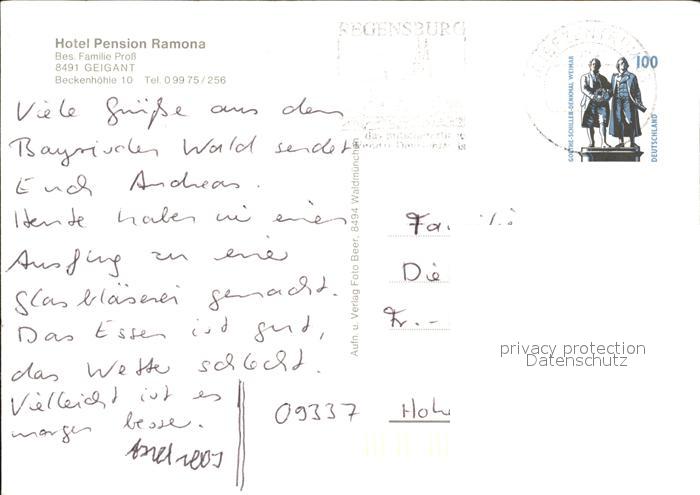 Hotel Pension Ramona
Bes. Familie Proß
8491 GEIGANT
Beckenhöhle 10 Tel. 0 99 75 / 256
REGENSBURG
100
GOETHE-SCHILLER-DENKMAL WEIMAR
DEUTSCHLAND
Viele Grüße aus dem
Bayrischen Wald sendet
Euch Andreas.
Heute haben wir einen
Ausflug zu einer
Glasbläserei gemacht.
Das Essen ist gut,
das Wetter schlecht.
Vielleicht ist es
morgen besser.
Andreas
Aufn. u. Verlag Foto Beer, 8494 Waldmünchen
Fa
Die
Fr. -
09337 Hohe
privacy protection
Datenschutz